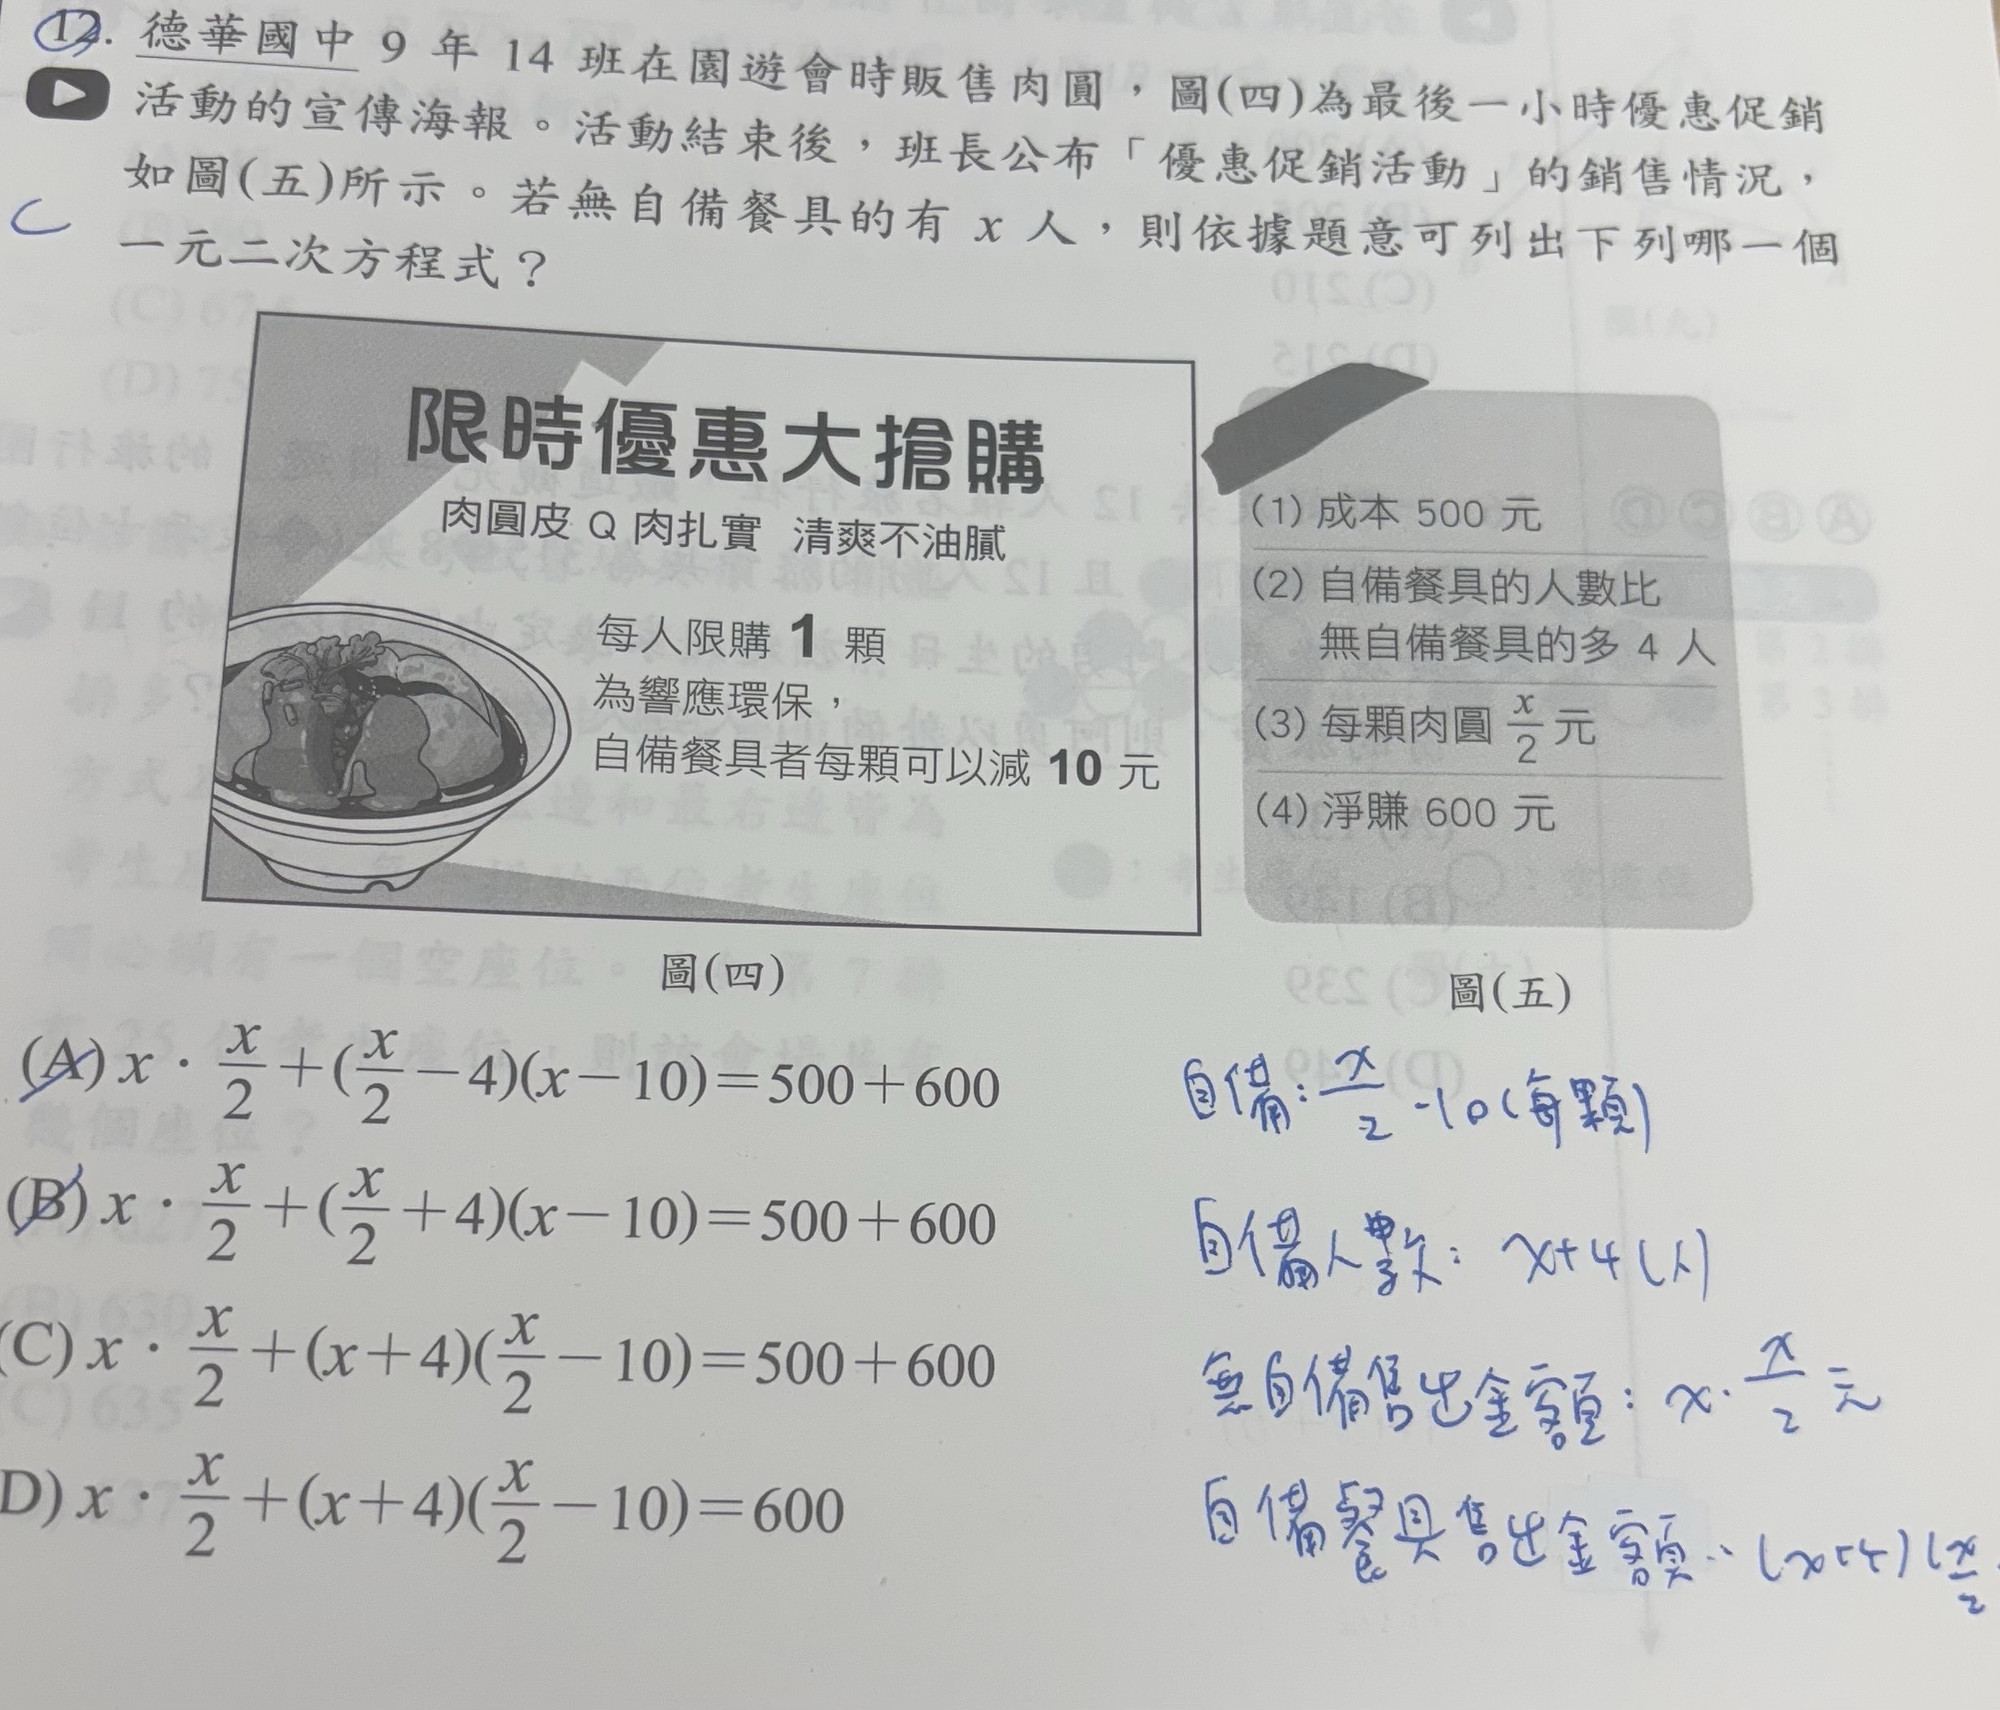 12. 德華國中 9 年 14 班在園遊會時販售肉圓，圖(四)為最後一小時優惠促銷
活動的宣傳海報。活動結束後，班長公布「優惠促銷活動」的銷售情況，
如圖(五)所示。若無自備餐具的有 x 人，則依據題意可列出下列哪一個
一元二次方程式？
C
限時優惠大搶購
肉圓皮 Q 肉扎實 清爽不油膩
每人限購 1 顆
為響應環保，
自備餐具者每顆可以減 10 元
圖(四)
(1) 成本 500 元
(2) 自備餐具的人數比
無自備餐具的多 4 人
(3) 每顆肉圓 x/2 元
(4) 淨賺 600 元
圖(五)
(A) x · x/2 + (x/2 − 4)(x − 10) = 500 + 600
(B) x · x/2 + (x/2 + 4)(x − 10) = 500 + 600
(C) x · x/2 + (x + 4)(x/2 − 10) = 500 + 600
D) x · x/2 + (x + 4)(x/2 − 10) = 600
自備: x/2 -10 (每顆)
自備人數: x+4 (人)
無自備售出金額: x · x/2 元
自備餐具售出金額: (x+4)(x/2